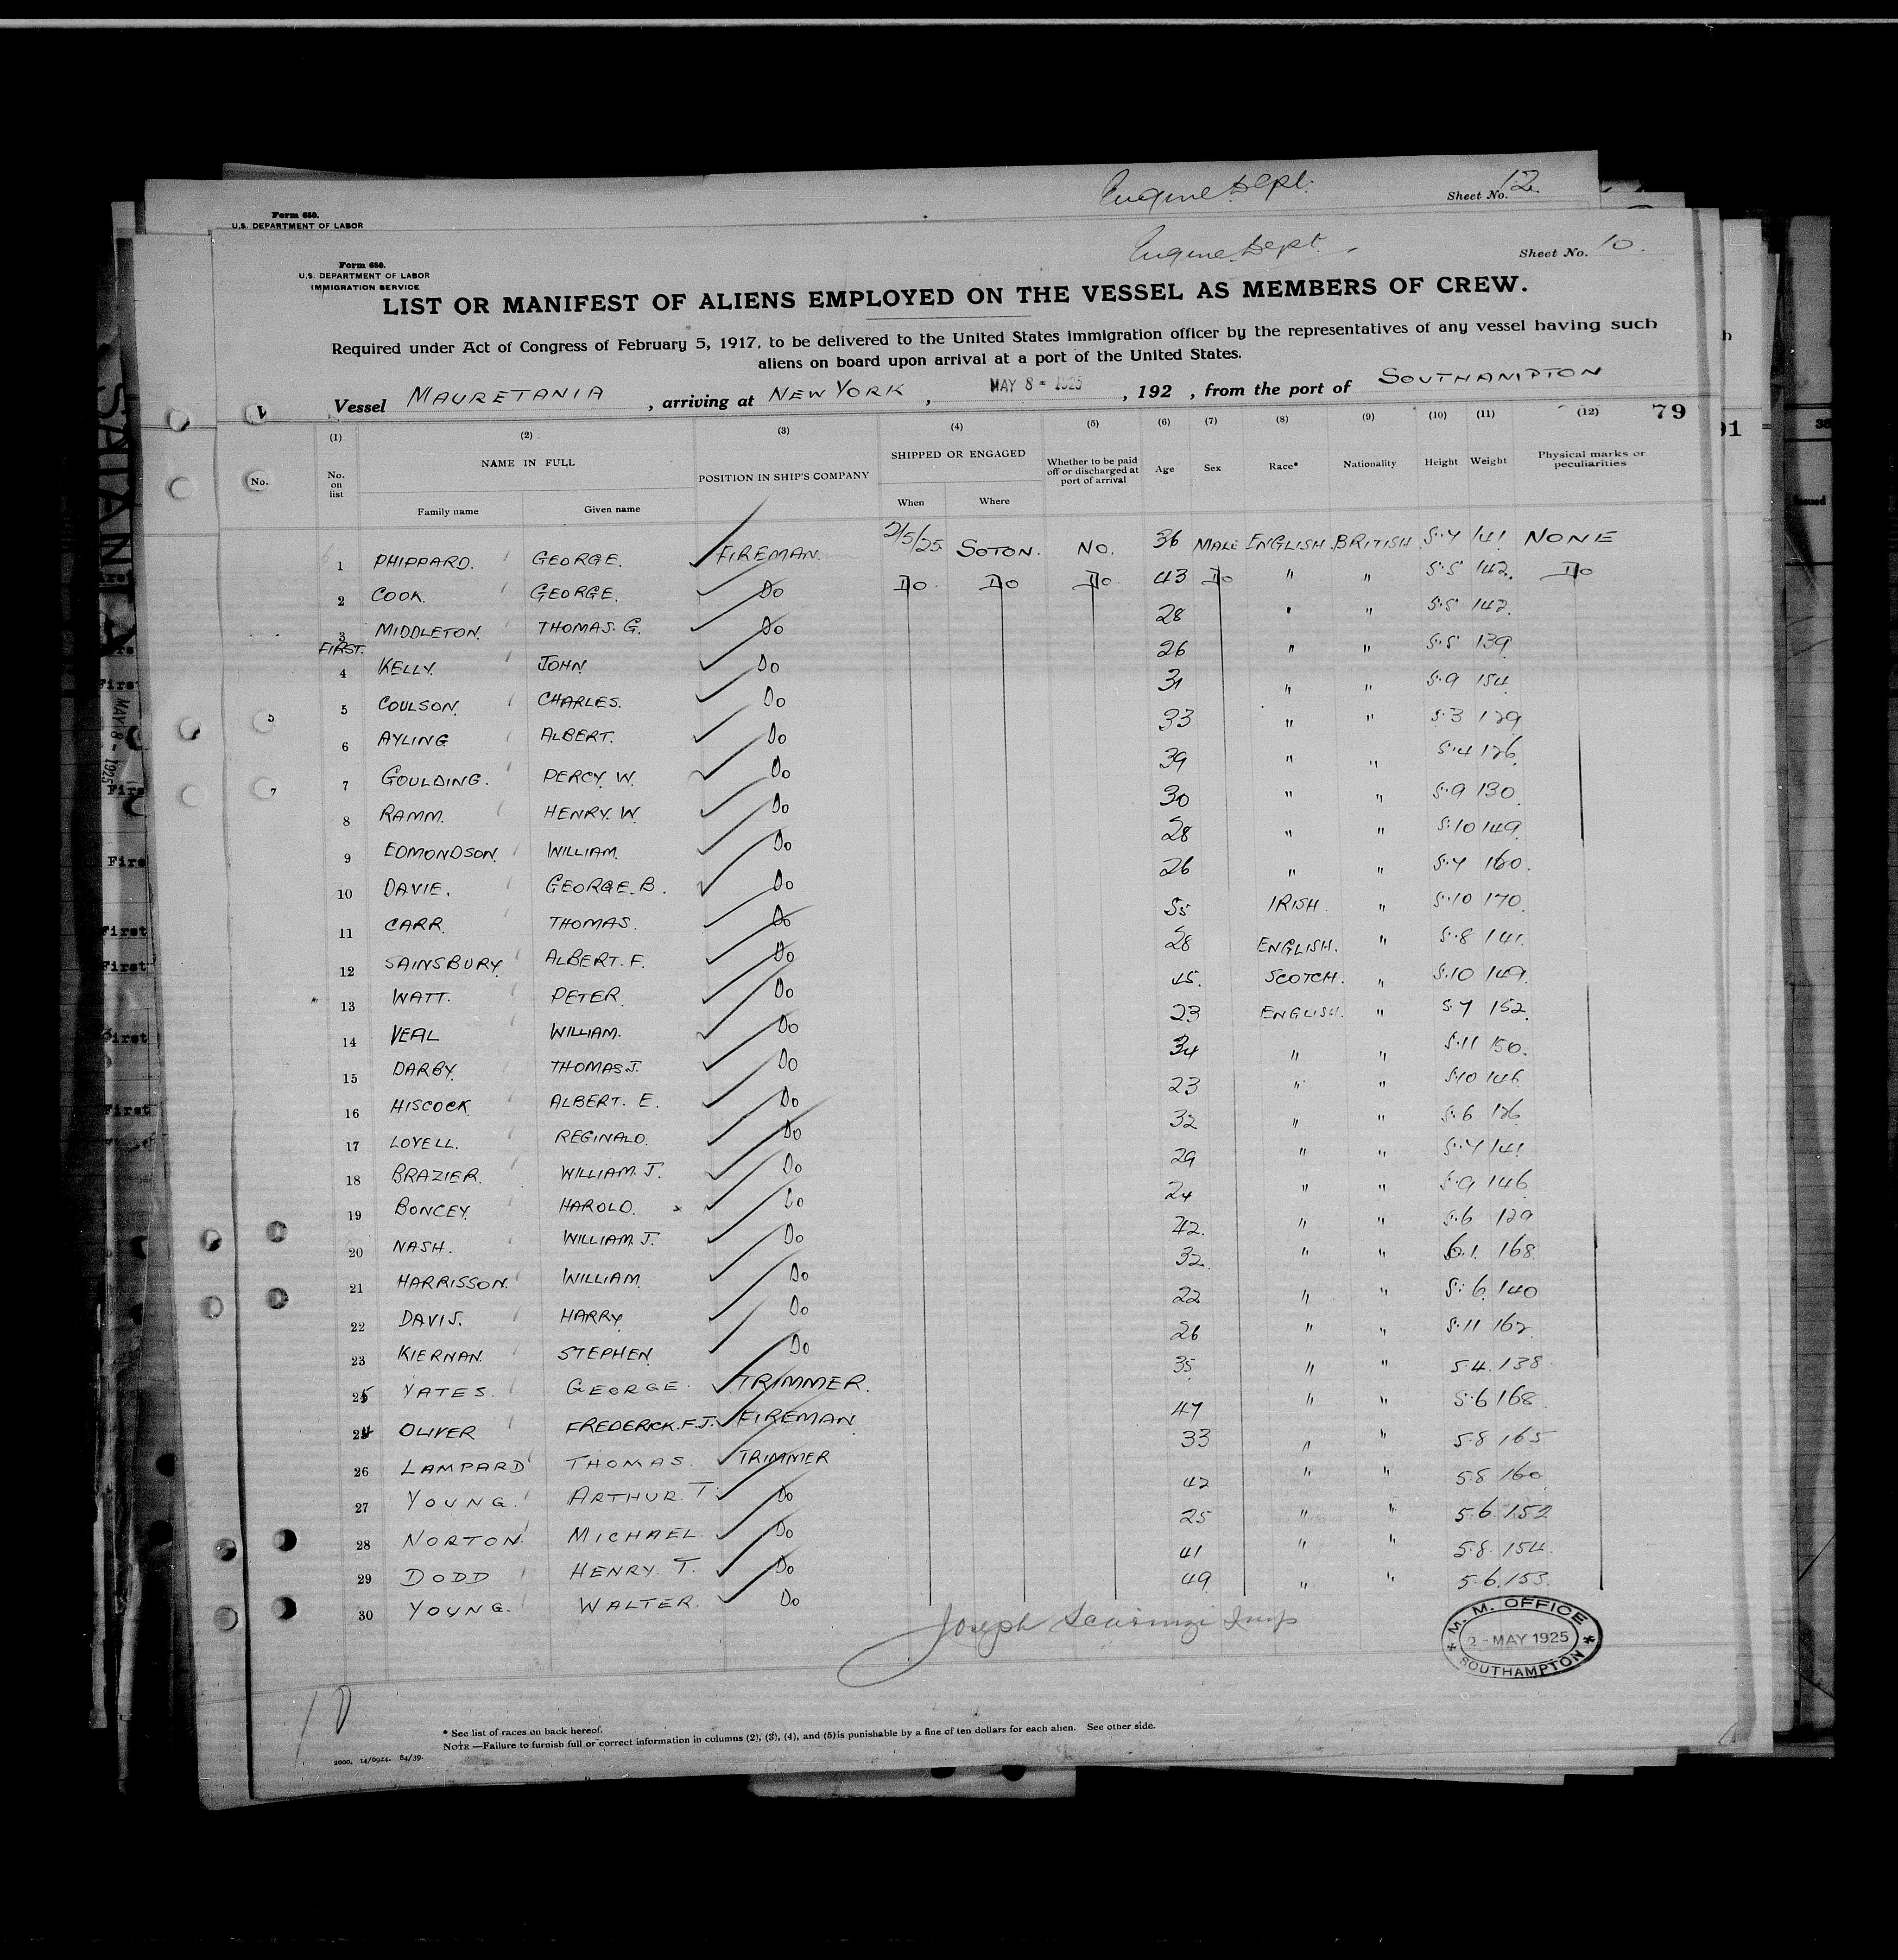 Engine Dept. Sheet No. 12.
Form 680.
U.S. DEPARTMENT OF LABOR
Engine Dept. Sheet No. 10.
Form 680.
U.S. DEPARTMENT OF LABOR
IMMIGRATION SERVICE
LIST OR MANIFEST OF ALIENS EMPLOYED ON THE VESSEL AS MEMBERS OF CREW.
Required under Act of Congress of February 5, 1917, to be delivered to the United States immigration officer by the representatives of any vessel having such
aliens on board upon arrival at a port of the United States.
Vessel MAURETANIA, arriving at NEW YORK, MAY 8 - 1925, 192 , from the port of SOUTHAMPTON
79
91
(1) (2) (3) (4) (5) (6) (7) (8) (9) (10) (11) (12)
No. on list NAME IN FULL POSITION IN SHIP'S COMPANY SHIPPED OR ENGAGED Whether to be paid off or discharged at port of arrival Age Sex Race* Nationality Height Weight Physical marks or peculiarities
Family name Given name When Where
1 PHIPPARD. GEORGE. FIREMAN. 2/5/25 SOTON. NO. 36 MALE ENGLISH BRITISH 5.7 141 NONE
2 COOK. GEORGE. Do Do Do Do 43 Do " " 5.5 142. Do
3 MIDDLETON. THOMAS. G. Do 28 " " 5.5 142.
FIRST.
4 KELLY. JOHN Do 26 " " 5.5 139
5 COULSON. CHARLES. Do 31 " " 5.9 154
6 AYLING ALBERT. Do 33 " " 5.3 129
7 GOULDING. PERCY. W. Do 39 " " 5.4 126.
8 RAMM. HENRY. W. Do 30 " " 5.9 130.
9 EDMONDSON. WILLIAM. Do 28 " " 5.10 149.
10 DAVIE. GEORGE. B. Do 26 " " 5.7 160.
11 CARR. THOMAS. Do 55 IRISH. " 5.10 170.
12 SAINSBURY. ALBERT. F. Do 28 ENGLISH. " 5.8 141.
13 WATT. PETER. Do 45. SCOTCH. " 5.10 149.
14 VEAL WILLIAM. Do 23 ENGLISH. " 5.7 152.
15 DARBY. THOMAS J. Do 34 " " 5.11 150.
16 HISCOCK. ALBERT. E. Do 23 " " 5.10 146
17 LOVELL. REGINALD. Do 32 " " 5.6 126
18 BRAZIER. WILLIAM. J. Do 29 " " 5.7 141
19 BONCEY. HAROLD. Do 24 " " 5.9 146
20 NASH. WILLIAM. J. Do 42. " " 5.6 129
21 HARRISSON. WILLIAM. Do 32. " " 6.1. 168.
22 DAVIS. HARRY. Do 22 " " 5.6 140
23 KIERNAN. STEPHEN. Do 26 " " 5.11 162.
25 YATES. GEORGE. TRIMMER. 35 " " 5.4. 138.
24 OLIVER FREDERICK. F. J. FIREMAN 47 " " 5.6 168
26 LAMPARD THOMAS. TRIMMER 33 " " 5.8 165
27 YOUNG. ARTHUR. T. Do 42 " " 5.8 160
28 NORTON. MICHAEL. Do 25 " " 5.6. 152
29 DODD HENRY. T. Do 41 " " 5.8. 154.
30 YOUNG. WALTER. Do 49 " " 5.6. 153.
Joseph
M. M. OFFICE
2 - MAY 1925
SOUTHAMPTON
10
* See list of races on back hereof.
NOTE —Failure to furnish full or correct information in columns (2), (3), (4), and (5) is punishable by a fine of ten dollars for each alien. See other side.
2000. 14/6924. 84/39.